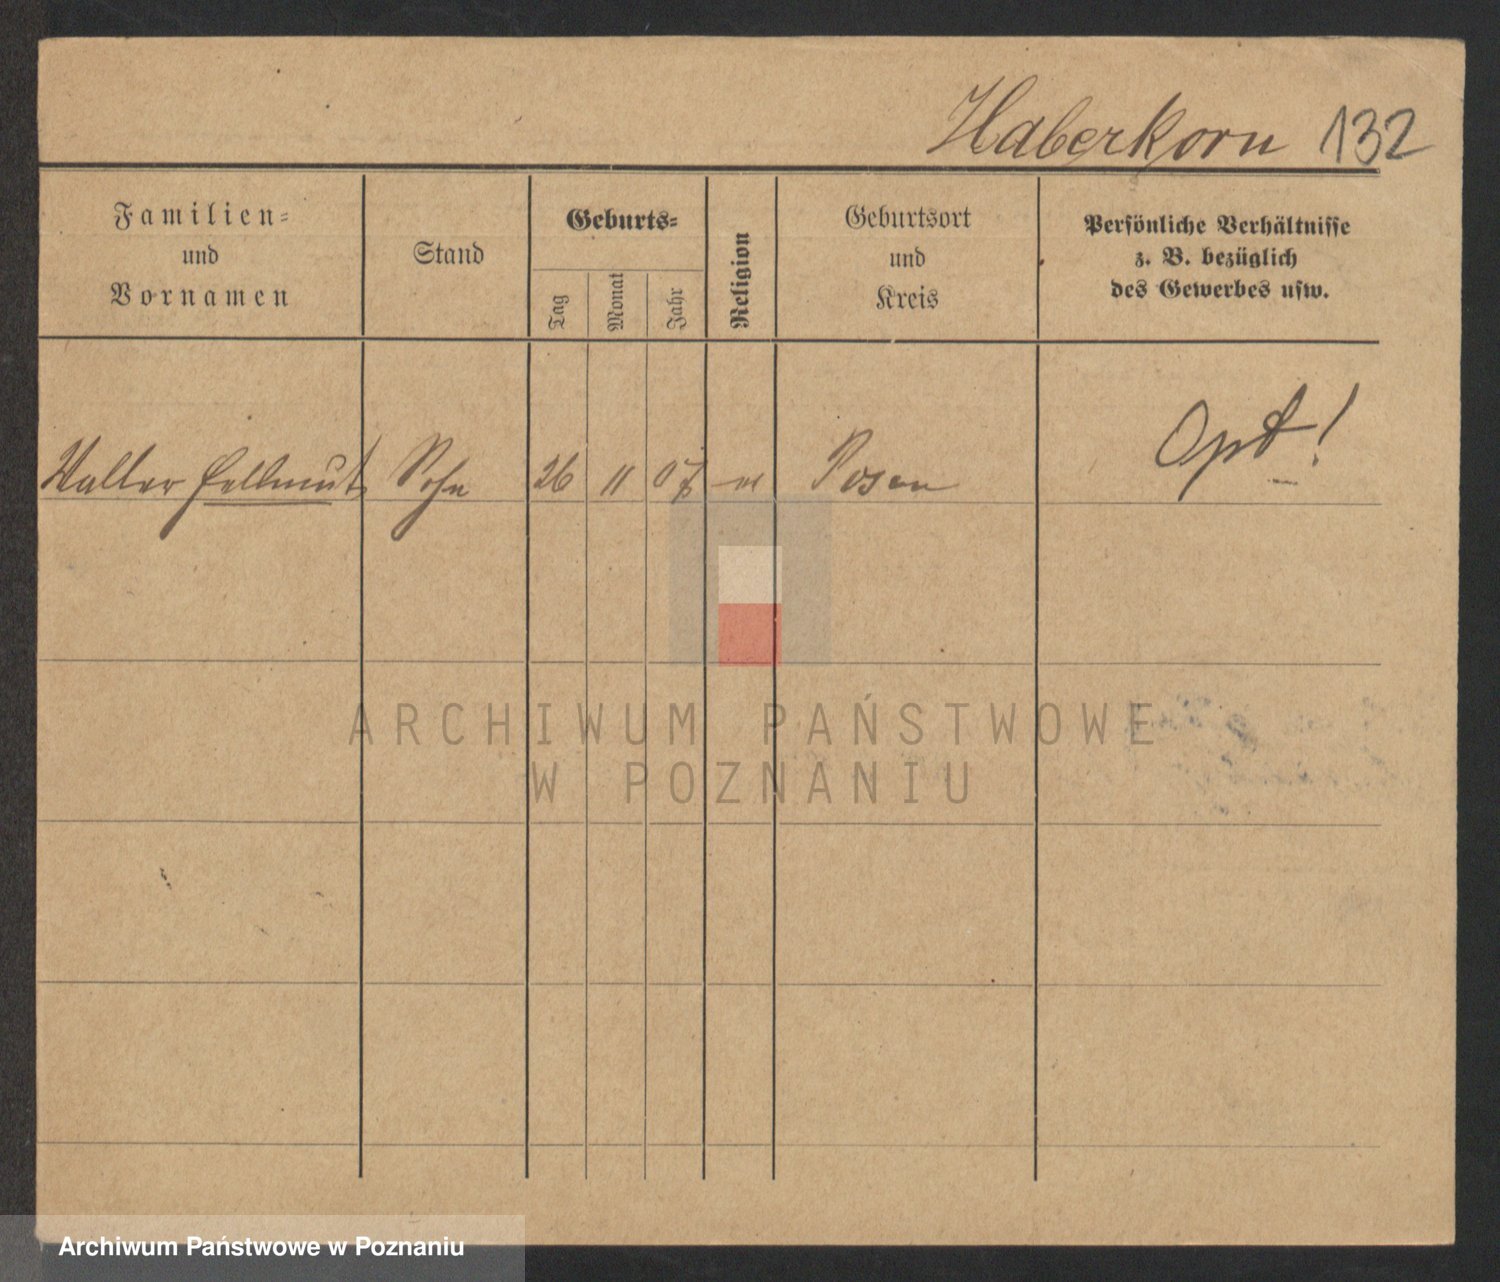 Haberkorn 132
Familien-
und
Vornamen
Stand
Geburts-
Tag
Monat
Jahr
Religion
Geburtsort
und
Kreis
Persönliche Verhältnisse
z. B. bezüglich
des Gewerbes usw.
Walter Hellmut Sohn 26 11 07 Posen Opt!
ARCHIWUM PAŃSTWOWE
W POZNANIU
Archiwum Państwowe w Poznaniu